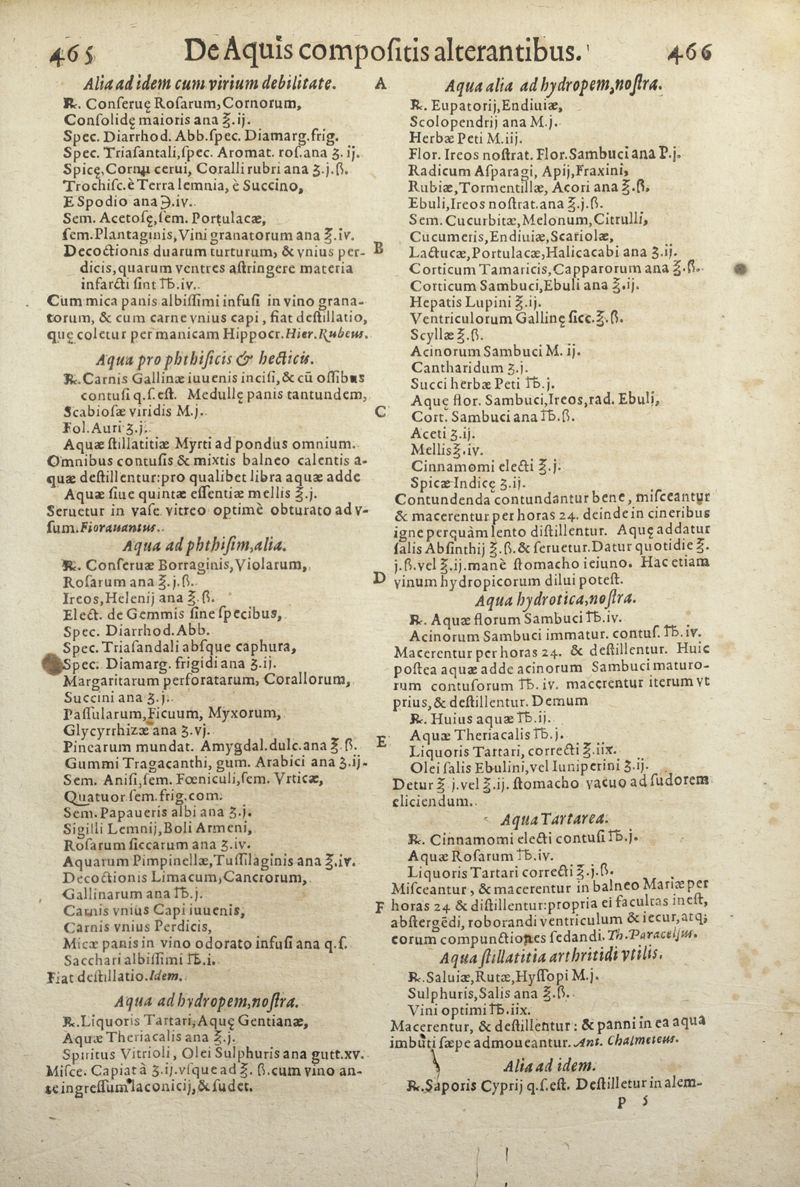 465 De Aquis compositis alterantibus. 466
Alia ad idem cum virium debilitate. A
℞. Conseruę Rosarum, Cornorum,
Consolidę maioris ana ℥.ij.
Spec. Diarrhod. Abb. spec. Diamarg. frig.
Spec. Triasantali, spec. Aromat. ros. ana ʒ. ij.
Spicę, Cornu cerui, Coralli rubri ana ʒ.j.ß.
Trochisc. è Terra lemnia, è Succino,
E Spodio ana ℈.iv.
Sem. Acetosę, sem. Portulacæ,
sem. Plantaginis, Vini granatorum ana ℥.iv.
Decoctionis duarum turturum, & vnius per- B
dicis, quarum ventres astringere materia
infarcti sint ℔.iv.
Cum mica panis albissimi infusi in vino grana-
torum, & cum carne vnius capi, fiat destillatio,
quę coletur per manicam Hippocr. Hier. Rubeus.
Aqua pro phthisicis & hecticis.
℞. Carnis Gallinæ iuuenis incisi, & cū ossibus
contusi q.s. est. Medullę panis tantundem,
Scabiosæ viridis M.j. C
Fol. Auri ʒ.j.
Aquæ stillatitiæ Myrti ad pondus omnium.
Omnibus contusis & mixtis balneo calentis a-
quæ destillentur: pro qualibet libra aquæ adde
Aquæ siue quintæ essentiæ mellis ℥.j.
Seruetur in vase vitreo optimè obturato ad v-
sum. Fiorauantus.
Aqua ad phthisim, alia.
℞. Conseruæ Borraginis, Violarum,
Rosarum ana ℥.j.ß. D
Ireos, Helenij ana ℥.ß.
Elect. de Gemmis sine specibus,
Spec. Diarrhod. Abb.
Spec. Triasandali absque caphura,
Spec. Diamarg. frigidi ana ʒ.ij.
Margaritarum perforatarum, Corallorum,
Succini ana ʒ.j.
Passularum, Ficuum, Myxorum,
Glycyrrhizæ ana ʒ.vj.
Pinearum mundat. Amygdal. dulc. ana ℥.ß. E
Gummi Tragacanthi, gum. Arabici ana ʒ.ij.
Sem. Anisi, sem. Fœniculi, sem. Vrticæ,
Quatuor sem. frig. com.
Sem. Papaueris albi ana ʒ.j.
Sigilli Lemnij, Boli Armeni,
Rosarum siccarum ana ʒ.iv.
Aquarum Pimpinellæ, Tussilaginis ana ℥.iv.
Decoctionis Limacum, Cancrorum,
Gallinarum ana ℔.j.
Carnis vnius Capi iuuenis, F
Carnis vnius Perdicis,
Micæ panis in vino odorato infusi ana q.s.
Sacchari albissimi ℔.i.
Fiat destillatio. Idem.
Aqua ad hydropem, nostra.
℞. Liquoris Tartari, Aquę Gentianæ,
Aquæ Theriacalis ana ℥.j.
Spiritus Vitrioli, Olei Sulphuris ana gutt.xv.
Misce. Capiat à ʒ.ij. vsque ad ℥.ß. cum vino an-
te ingressum laconicij, & sudet.
Aqua alia ad hydropem, nostra.
℞. Eupatorij, Endiuiæ,
Scolopendrij ana M.j.
Herbæ Peti M.iij.
Flor. Ireos nostrat. Flor. Sambuci ana P.j.
Radicum Asparagi, Apij, Fraxini,
Rubiæ, Tormentillæ, Acori ana ℥.ß.
Ebuli, Ireos nostrat. ana ʒ.j.ß.
Sem. Cucurbitæ, Melonum, Citrulli,
Cucumeris, Endiuiæ, Scariolæ,
Lactucæ, Portulacæ, Halicacabi ana ʒ.ij.
Corticum Tamaricis, Capparorum ana ℥.ß.
Corticum Sambuci, Ebuli ana ℥.ij.
Hepatis Lupini ℥.ij.
Ventriculorum Gallinę sicc. ℥.ß.
Scyllæ ℥.ß.
Acinorum Sambuci M. ij.
Cantharidum ʒ.j.
Succi herbæ Peti ℔.j.
Aquę flor. Sambuci, Ireos, rad. Ebuli,
Cort. Sambuci ana ℔.ß.
Aceti ʒ.ij.
Mellis ℥.iv.
Cinnamomi electi ℥.j.
Spicæ Indicę ʒ.ij.
Contundenda contundantur bene, misceantur
& macerentur per horas 24. deinde in cineribus
igne perquàm lento distillentur. Aquę addatur
salis Absinthij ℥.ß. & seruetur. Datur quotidie ℥.
j.ß. vel ℥.ij. manè stomacho ieiuno. Hac etiam
vinum hydropicorum dilui potest.
Aqua hydrotica, nostra.
℞. Aquæ florum Sambuci ℔.iv.
Acinorum Sambuci immatur. contus. ℔.iv.
Macerentur per horas 24. & destillentur. Huic
postea aquæ adde acinorum Sambuci maturo-
rum contusorum ℔. iv. macerentur iterum vt
prius, & destillentur. Demum
℞. Huius aquæ ℔.ij.
Aquæ Theriacalis ℔.j.
Liquoris Tartari, correcti ℥.iix.
Olei salis Ebulini, vel Iuniperini ʒ.ij.
Detur ℥ j. vel ℥.ij. stomacho vacuo ad sudorem
eliciendum.
Aqua Tartarea.
℞. Cinnamomi electi contusi ℔.j.
Aquæ Rosarum ℔.iv.
Liquoris Tartari correcti ℥.j.ß.
Misceantur, & macerentur in balneo Mariæ per
horas 24 & distillentur: propria ei facultas inest,
abstergēdi, roborandi ventriculum & iecur, atq;
eorum compunctiones sedandi. Th. Paracelsus.
Aqua stillatitia arthritidi vtilis.
℞. Saluiæ, Rutæ, Hyssopi M.j.
Sulphuris, Salis ana ℥.ß.
Vini optimi ℔.iix.
Macerentur, & destillentur: & panni in ea aqua
imbuti sæpe admoueantur. Ant. Chalmeteus.
Alia ad idem.
℞. Saporis Cyprij q.s. est. Destilletur in alem-
P 5